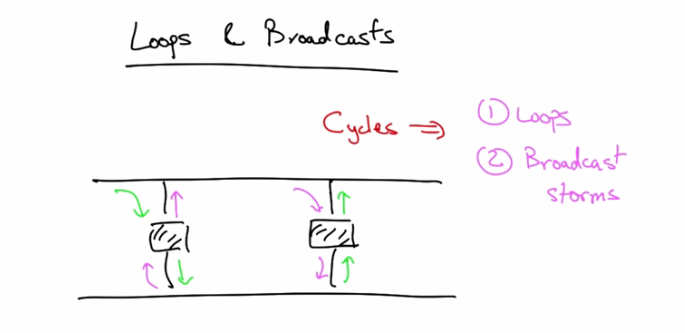 Loops & Broadcasts
Cycles ⇒
① Loops
② Broadcast
storms